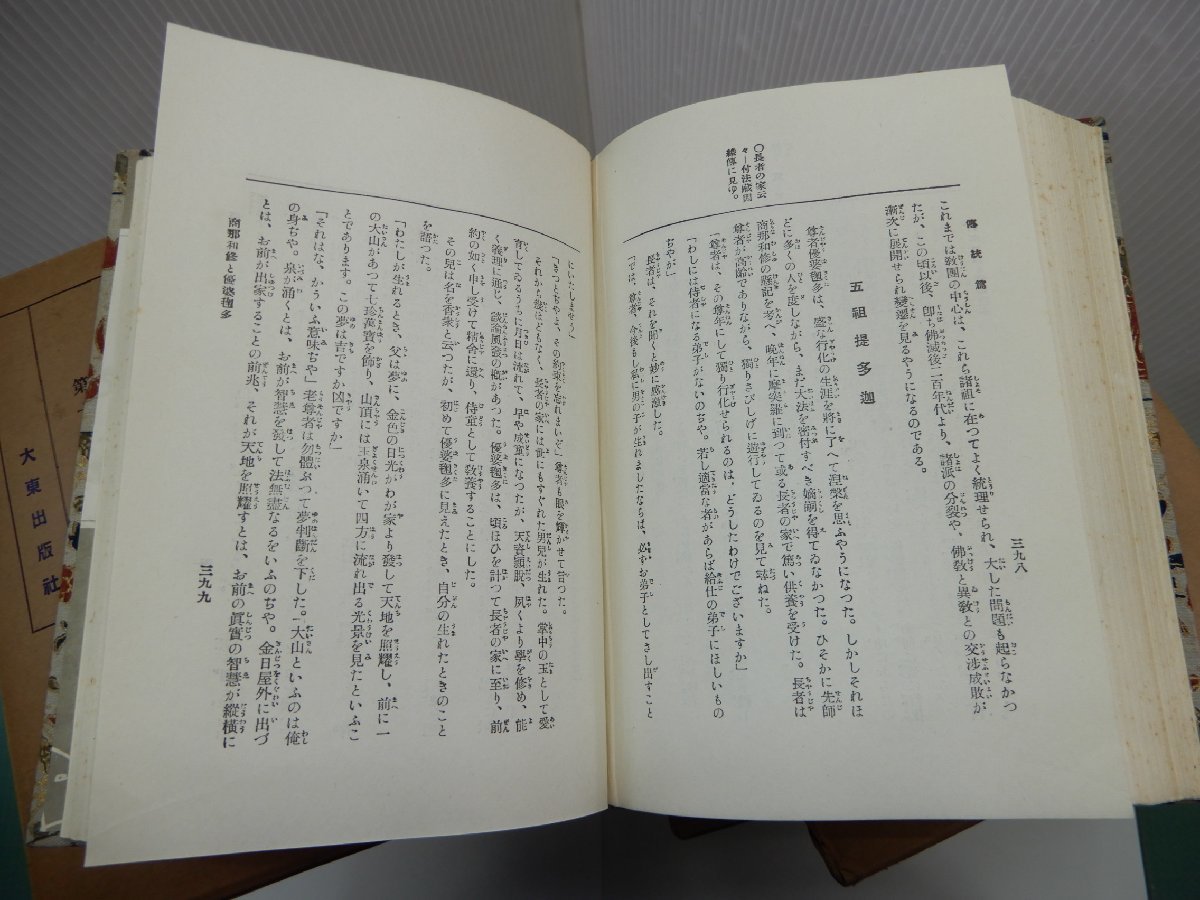 傳統篇
三九八
これまでは敎團の中心は、これら諸祖に在つてよく統理せられ、大した問題も起らなかつ
たが、この頃以後、卽ち佛滅後二百年代より、諸派の分裂や、佛敎と異敎との交渉成敗が
漸次に展開せられ變遷を見るやうになるのである。
五祖提多迦
尊者優婆毱多は、盛な行化の生涯を將に了へて涅槃を思ふやうになつた。しかしそれほ
どに多くの人を度しながら、まだ大法を密付すべき嫡嗣を得てゐなかつた。ひそかに先師
商那和修の懸記を考へ、晩年に摩突羅に到つて或る長者の家で篤い供養を受けた。長者は
尊者が高齡でありながら、獨りさびしげに遊行してゐるのを見て尋ねた。
「尊者は、その尊年にして獨り行化せられるのは、どうしたわけでございますか」
「わしには侍者になる弟子がないのぢや。若し適當な者があらば給仕の弟子にほしいもの
ぢやが」
長者は、それを聞くと妙に感激した。
「では、尊者、今後もし私に男の子が生れましたならば、必ずお弟子としてさし出すこと
〇長者の家云
々―付法藏因
緣傳に見ゆ。
にいたしませう」
「きつとぢやよ、その約束を忘れまいぞ」尊者も眼を輝かせて言つた。
それから幾ほどもなく、長者の家には世にもすぐれた男兒が生れた。掌中の玉として愛
育してゐるうちに月日は流れて、早や成童になつたが、天資穎脫、夙くより學を修め、能
く義理に通じ、談論風發の槪があつた。優婆毱多は、頃ほひを計つて長者の家に至り、前
約の如く申し受けて精舍に還り、侍童として敎養することにした。
その兒は名を香衆と云つたが、初めて優婆毱多に見えたとき、自分の生れたときのこと
を語つた。
「わたしが生れるとき、父は夢に、金色の日光がわが家より發して天地を照耀し、前に一
の大山があつて七珍萬寶を飾り、山頂には玉泉涌いて四方に流れ出る光景を見たといふこ
とであります。この夢は吉ですか凶ですか」
「それはな、かういふ意味ぢや」老尊者は勿體ぶつて夢判斷を下した。「大山といふのは俺
の身ぢや。泉が涌くとは、お前が智慧を發して法無盡なるをいふのぢや。金日屋外に出づ
とは、お前が出家することの前兆、それが天地を照耀すとは、お前の眞實の智慧が縱橫に
商那和修と優婆毱多
三九九
第
大東出版社